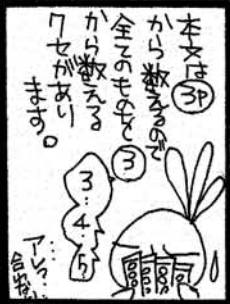 本文は3P
から数えるので
全てのものを3
から数える
クセがあり
ます。
3…4…5
アレ?…
合わない